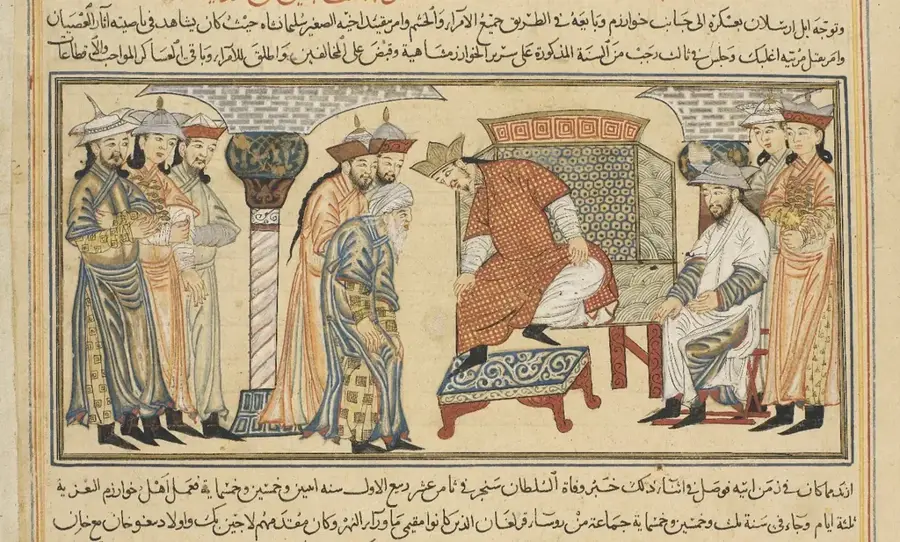 وتوجه ايل ارسلان بعسكره الى جانب خوارزم وبايعه في الطريق جميع الامراء والحشم وامر بقيد اخيه الصغير سلمانشاه حيث كان يشاهد في ناصيته آثار العصيان
وامر بقتل مربيه اغلبك وجلس في ثالث رجب من السنة المذكورة على سرير الخوارزمشاهية وقبض على المخالفين واطلق للامراء وباقي العساكر المواجب والاقطاعات
ازيد مما كان في زمن ابيه فوصل في اثناء ذلك خبر وفاة السلطان سنجر في ثامن عشر ربيع الاول سنه اثنين وخمسين وخمسماية فعمل اهل خوارزم التعزية
ثلثة ايام وجاء في سنة ثلث وخمسين وخمسماية جماعة من روساء قرلغان الذين كانوا مقيمي ماوراء النهر وكان مقدمهم لاجين بك واولاد بيغو خان مع خان